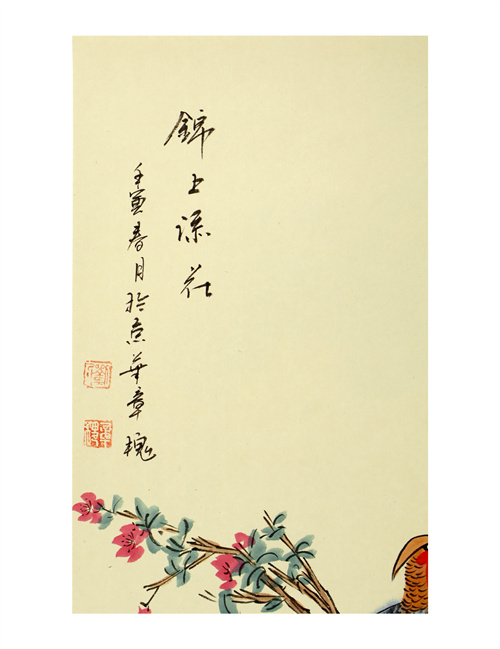 錦上添花
壬寅春月於京華章槐